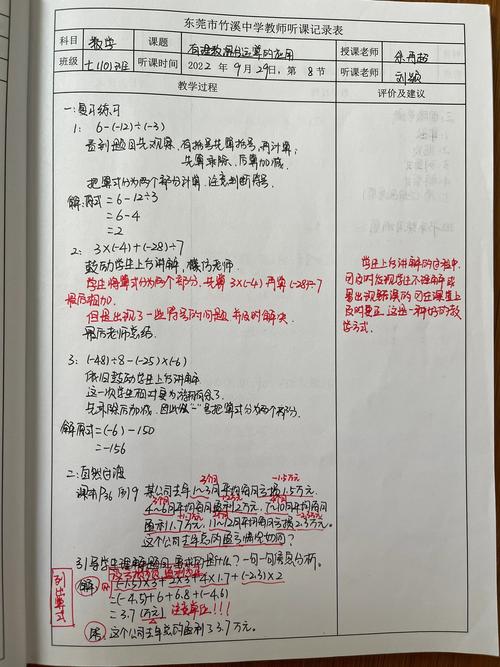 东莞市竹溪中学教师听课记录表
科目 数学 课题 有理数混合运算的应用 授课老师
班级 七(10)班 听课时间 2022 年 9 月 29 日，第 8 节 听课老师 刘颖
教学过程 评价及建议
一：复习练习
1： 6-(-12)÷(-3)
看到题目先观察，有括号先算括号，再计算；
先算乘除，后算加减。
把算式分为两个部分计算，注意判断符号。
解：原式=6-12÷3
=6-4
=2
2： 3×(-4)+(-28)÷7
鼓励学生上台讲解，模仿老师。
学生将算式分为两个部分，先算3×(-4)再算(-28)÷7
最后相加。
但是出现了一些符号的问题，并及时解决。
最后老师总结。
学生上台讲解的过程中
可及时发现学生不理解或
易出现错误的，可在课堂上
及时更正。这是一种好的教
学方式。
3： (-48)÷8-(-25)×(-6)
依旧鼓励学生上台讲解
这一次学生相对更为流畅
先乘除后加减，因此以“-”号把算式分为两个部分。
解：原式=(-6)-150
=-156
二：自然过渡
课本P36 例9 某公司去年1~3月平均每月亏损1.5万元，
4~6月平均每月盈利2万元，7~10月平均每月
盈利1.7万元，11~12月平均每月亏损2.3万元。
这个公司去年总的盈亏情况如何？
3个月 -1.5万元
3个月
引导学生理解题目，要求的是什么？一句一句信息分析。
列出算式
解： (-1.5)×3+2×3+4×1.7+(-2.3)×2
=(-4.5)+6+6.8+(-4.6)
=3.7 (万元) 注意单位!!!
答：这个公司去年总的盈利3.7万元。